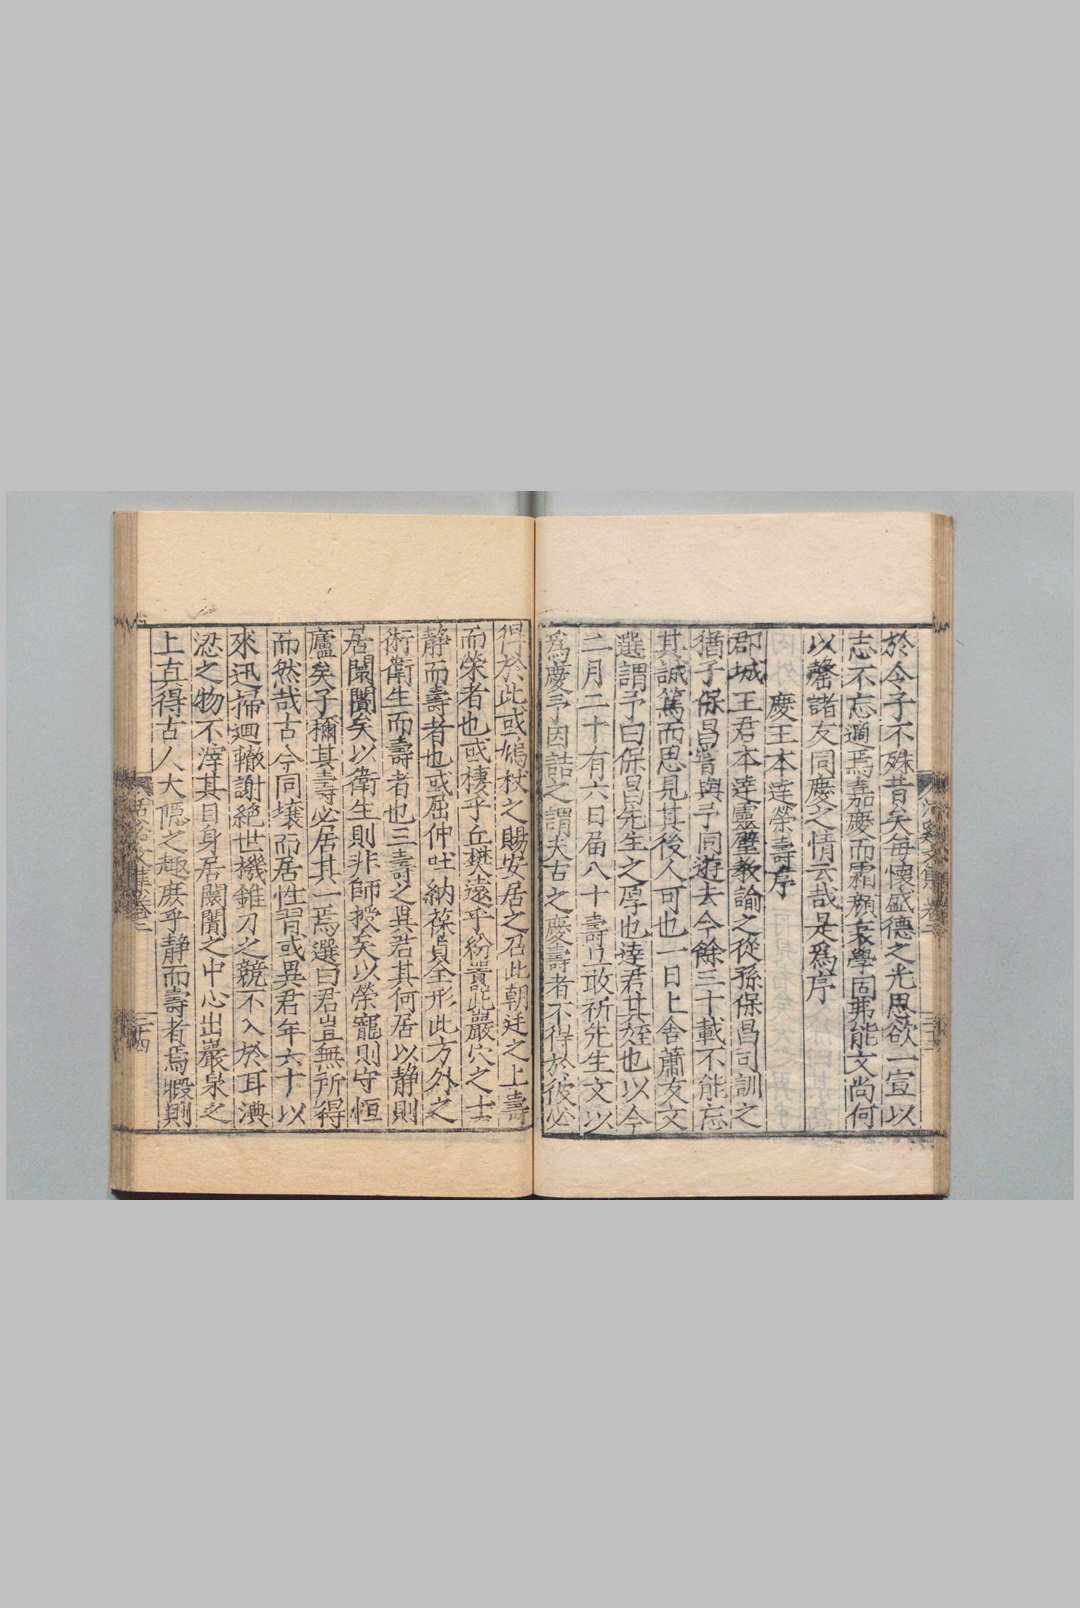 於今子不殊昔矣每懷盛德之光思欲一宣以
志不忘適焉嘉慶而霜顏衰學固弗能文尚何
以罄諸友同慶之情云哉是為序
慶王本達榮壽序
郡城王君本達靈璧教諭之從孫保昌司訓之
猶子保昌嘗與予同遊去今餘三十載不能忘
其誠篤而思見其後人可也一日上舍蕭友文
選謂予曰保昌先生之厚也達君其姪也以今
二月二十有六日届八十壽旦敢祈先生文以
為慶予因詰之謂夫古之慶壽者不得於彼必
得於此或鳩杖之賜安居之召此朝廷之上壽
而榮者也或棲乎丘樊遠乎紛囂此巖穴之士
靜而壽者也或屈伸吐納葆真全形此方外之
術衛生而壽者也三壽之與君其何居以靜則
居闤闠矣以衛生則非師授矣以榮寵則守恒
廬矣子稱其壽必居其一焉選曰君豈無所得
而然哉古今同壤而居性習或異君年六十以
來迅掃迴轍謝絕世機錐刀之競不入於耳淟
涊之物不滓其目身居闤闠之中心出巖泉之
上直得古人大隱之趣庶乎靜而壽者焉嘏則